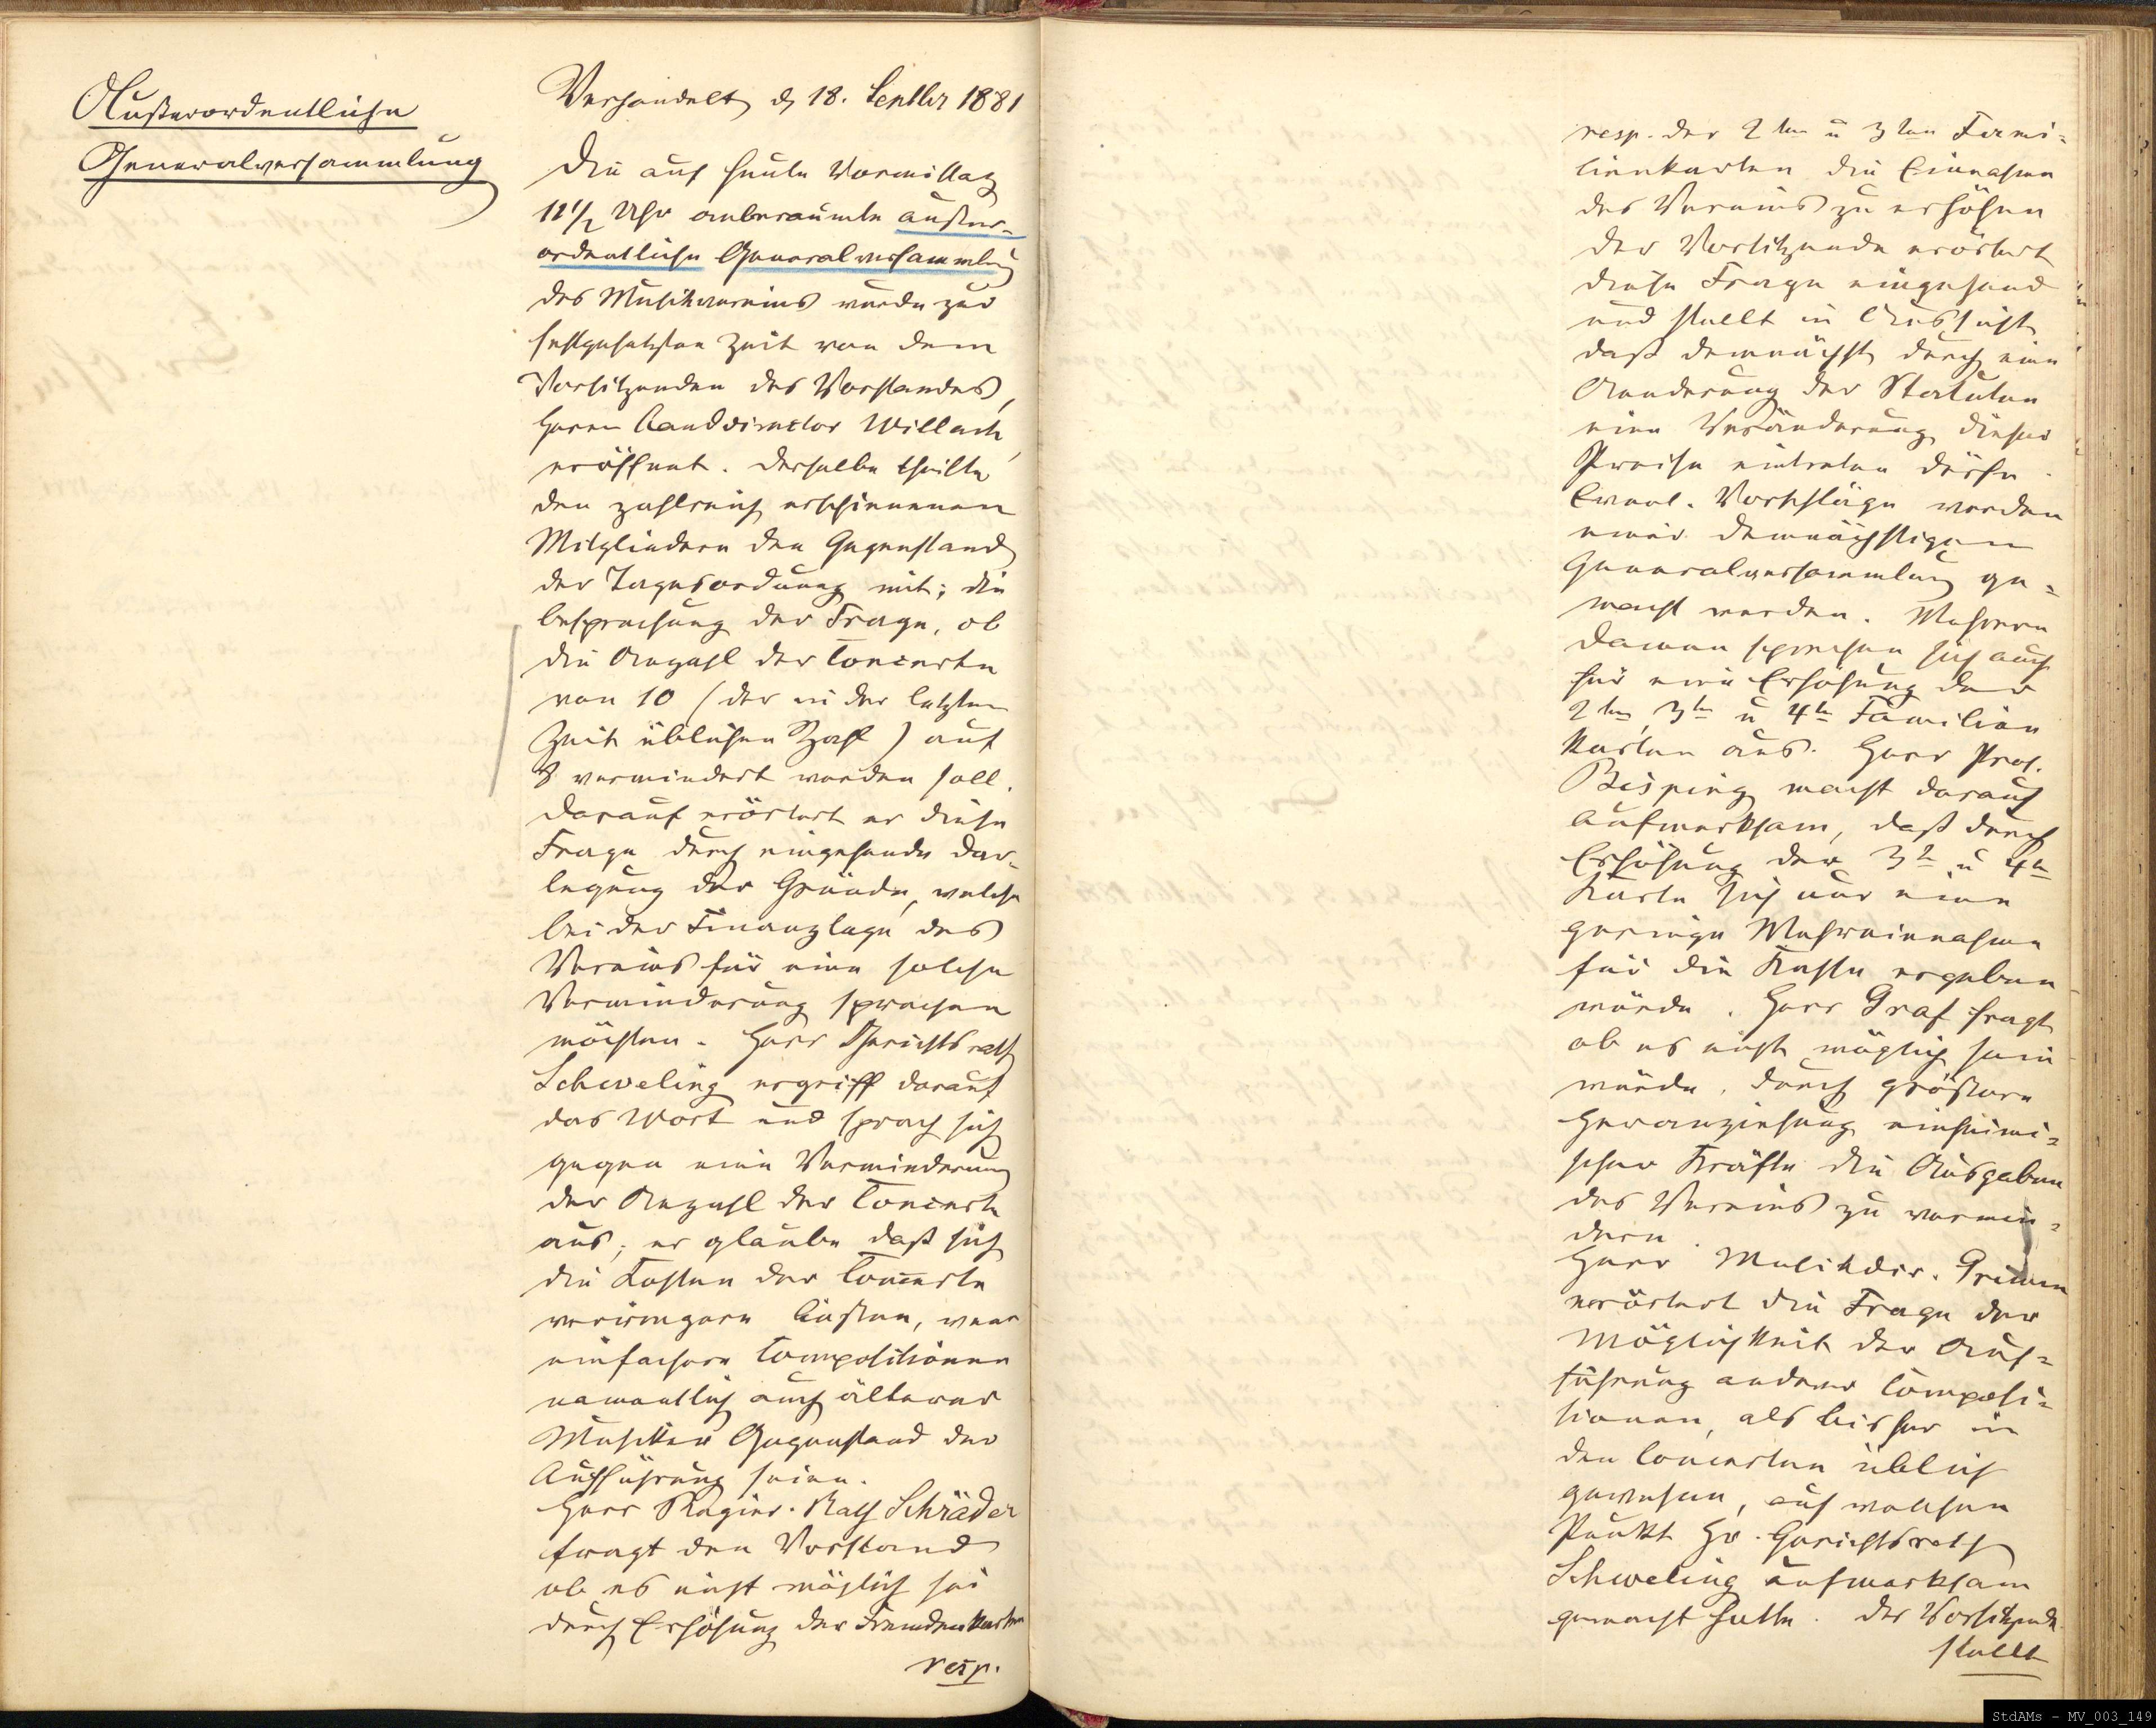 Außerordentliche
Generalversammlung
Verhandelt d. 18. Septbr 1881
Die auf heute Vormittag
11 1/2 Uhr anberaumte außer-
ordentliche Generalversammlung
des Musikvereins wurde zur
festgesetzten Zeit von dem
Vorsitzenden des Vorstandes,
Herrn Landdirector Willach,
eröffnet. Derselbe theilte
den zahlreich erschienenen
Mitgliedern den Gegenstand
der Tagesordnung mit; die
Besprechung der Frage, ob
die Anzahl der Concerte
von 10 (der in der letzten
Zeit üblichen Zahl) auf
8 vermindert werden soll.
Darauf erörtert er diese
Frage durch eingehende Dar-
legung der Gründe, welche
bei der Finanzlage des
Vereins für eine solche
Verminderung sprechen
möchten. Herr Gerichtsrath
Schweling ergriff darauf
das Wort und sprach sich
gegen eine Verminderung
der Anzahl der Concerte
aus; er glaube daß sich
die Kosten der Concerte
verringern ließen, wenn
einfachere Compositionen
namentlich auch älterer
Musiker Gegenstand der
Aufführung seien.
Herr Regier. Rath Schräder
fragt den Vorstand
ob es nicht möglich sei
durch Erhöhung der Fremdenkarten
resp.
resp. der 2ten u 3ten Fami=
lienkarten die Einnahmen
des Vereins zu erhöhen
Der Vorsitzende erörtert
diese Frage eingehend
und stellt in Aussicht,
daß demnächst durch eine
Aenderung der Statuten
eine Veränderung dieser
Preise eintreten dürfe.
Event. Vorschläge werden
einer demnächstigen
Generalversammlung ge=
macht werden. Mehrere
Damen sprechen sich auch
für eine Erhöhung der
2ten, 3ten u 4ten Familien
Karten aus. Herr Prof.
Bisping macht darauf
aufmerksam, daß durch
Erhöhung der 3ten u 4ten
Karte sich nur eine
geringe Mehreinnahme
für die Kasse ergeben
würde. Herr Graf fragt
ob es nicht möglich sein
würde, durch größere
Heranziehung einheimi=
scher Kräfte die Ausgaben
des Vereins zu vermin=
dern.
Herr Musikdir. Grimm
erörtert die Frage der
Möglichkeit der Auf=
führung anderer Composi=
tionen, als bisher in
den Concerten üblich
gewesen, auf welchen
Punkt Hr. Gerichtsrath
Schweling aufmerksam
gemacht hatte. Der Vorsitzende
stellt
StdAMs - MV_003_149